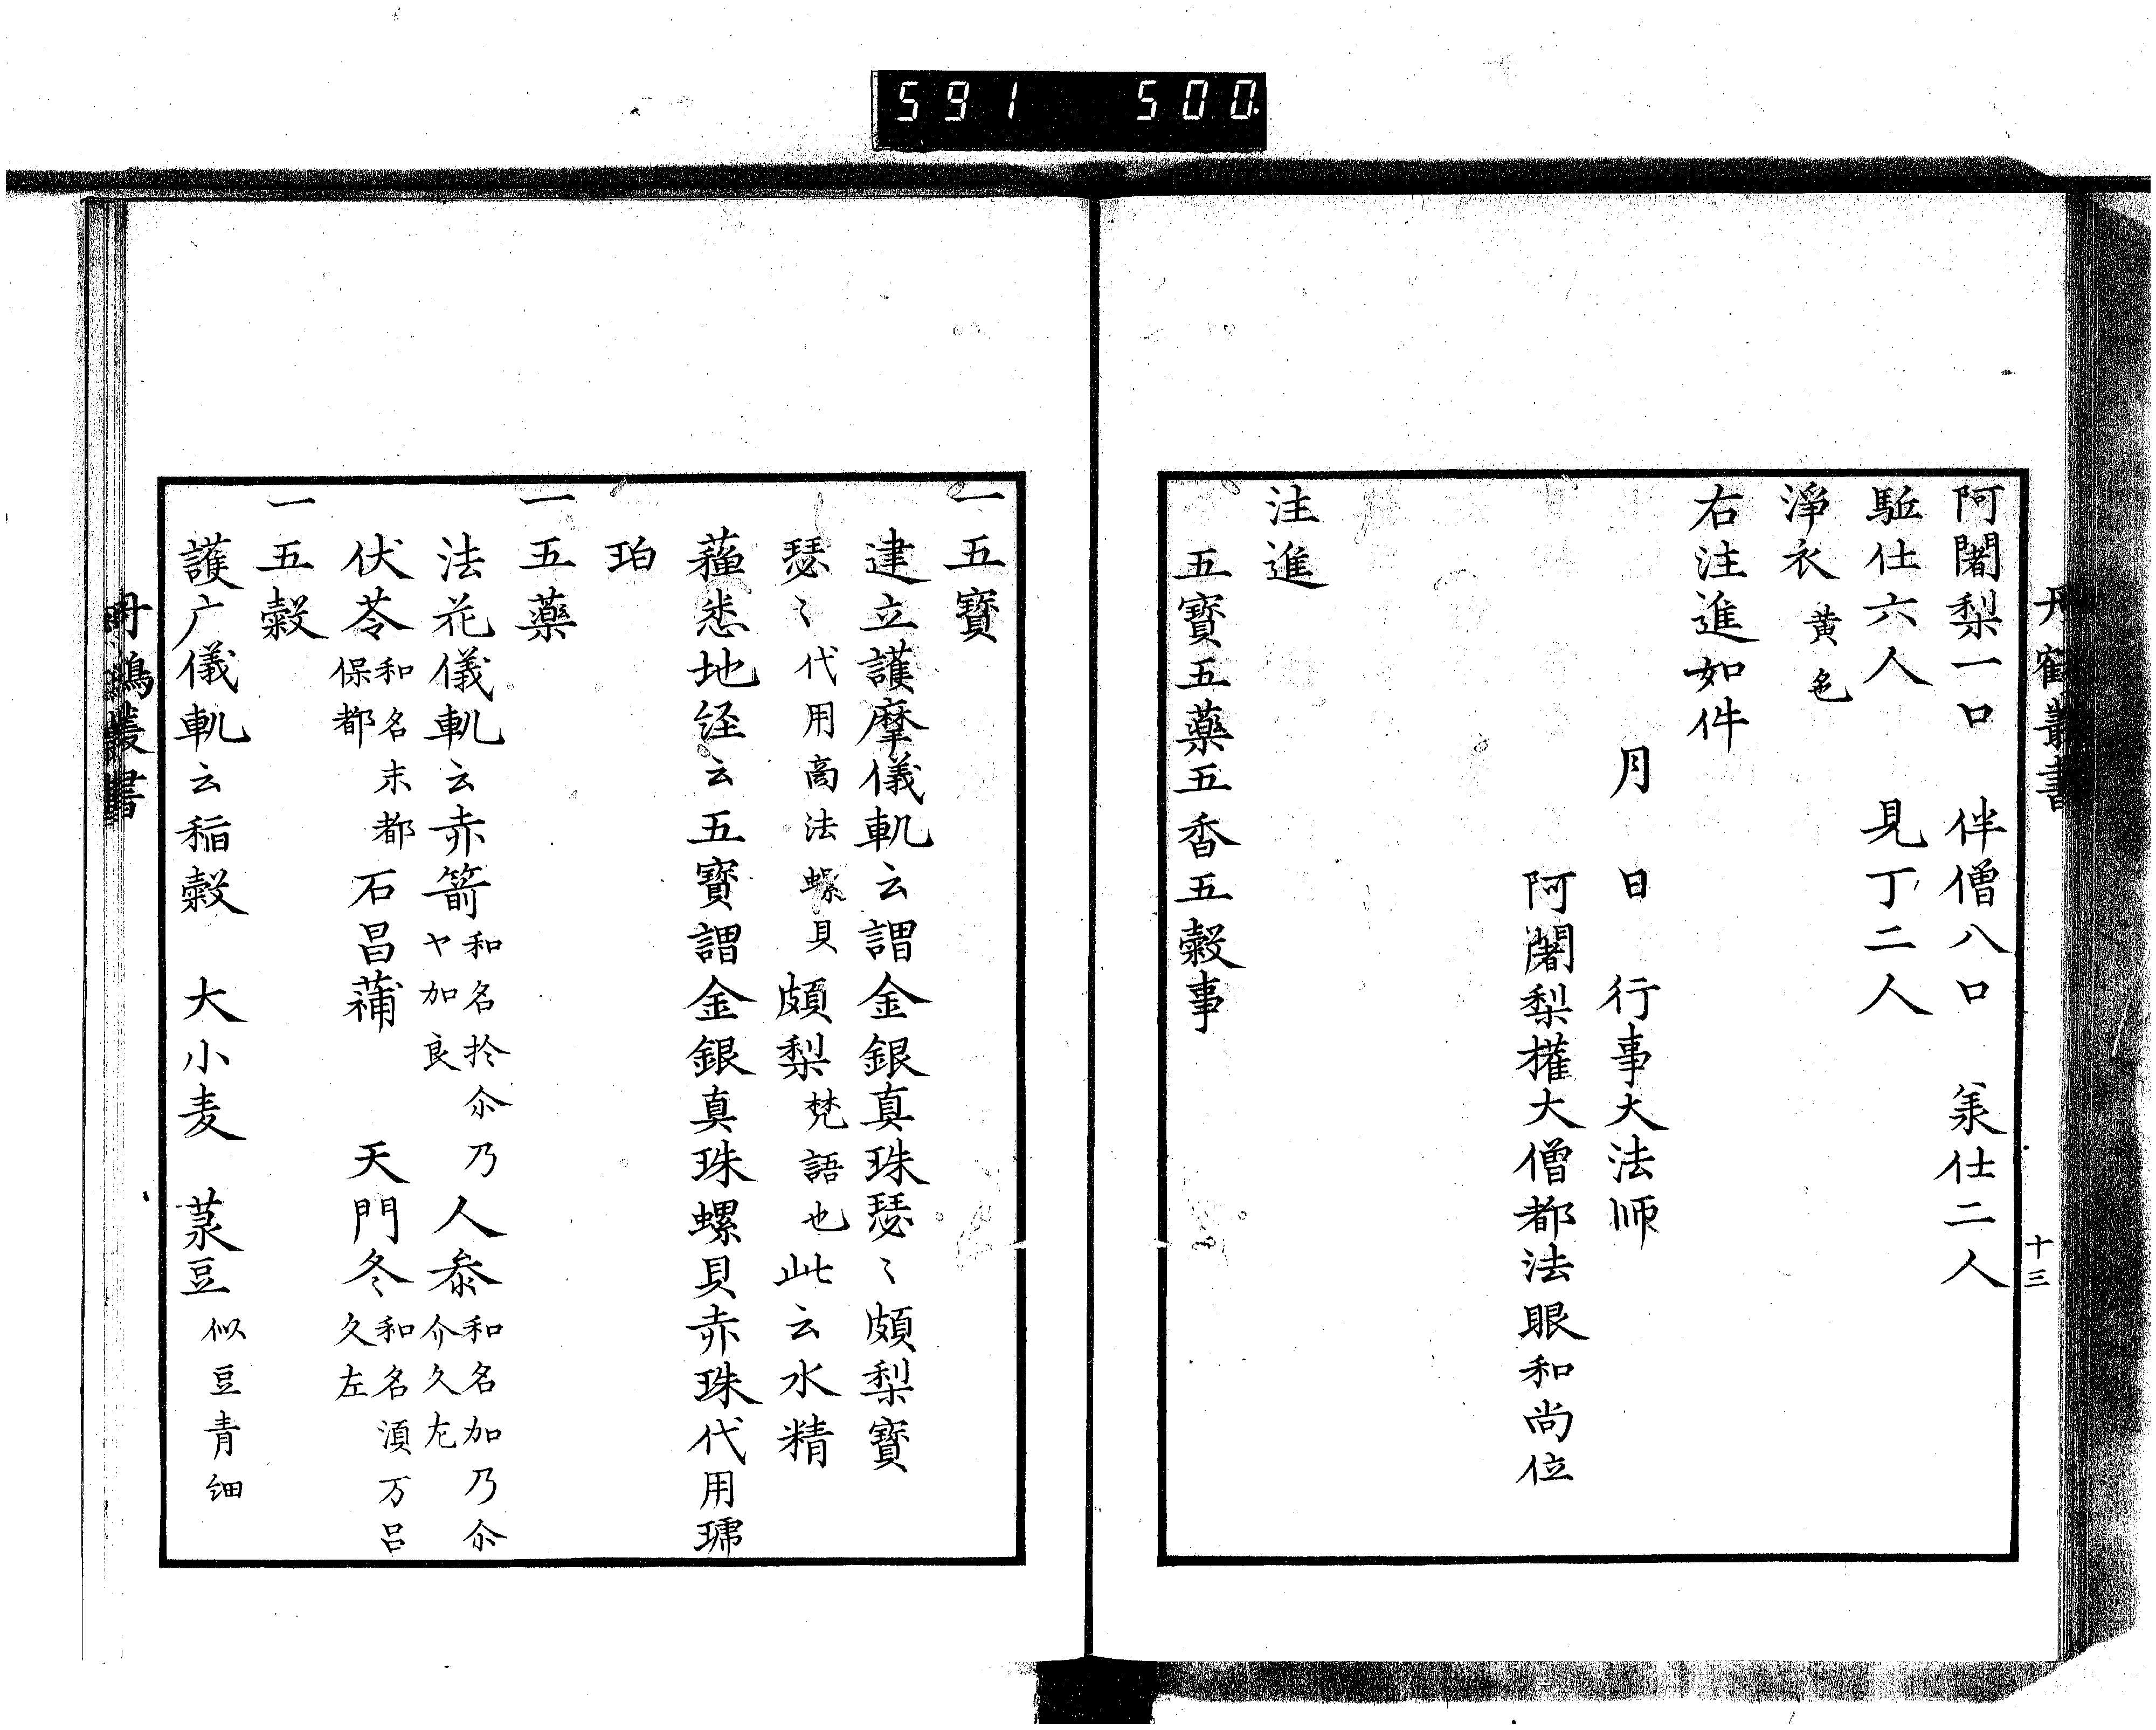 591 500
丹鶴叢書
十三
阿闍梨一口 伴僧八口 㒵仕二人
駈仕六人 見丁二人
淨衣 黄色
右注進如件
月 日 行事大法师
阿闍梨權大僧都法眼和尚位
注進
五寳五藥五香五糓事
一五寳
建立護摩儀軌云謂金銀真珠瑟〻頗梨寳
瑟〻代用商法螺貝 頗梨梵語也 此云水精
蘓悉地经云五寳謂金銀真珠螺貝赤珠代用琥
珀
一五藥
法花儀軌云赤箭 和名扵尒乃ヤ加良 人参 和名加乃尒介久左
伏苓 和名末都保都 石昌蒲 天門冬 和名湏万吕久左
一五糓
護广儀軌云稲糓 大小麦 菉豆 似豆青细
丹鶴叢書